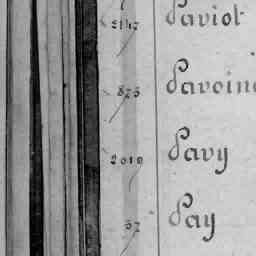 2142 Paviot
826 Pavoine
2010 Pavy
32 Pay